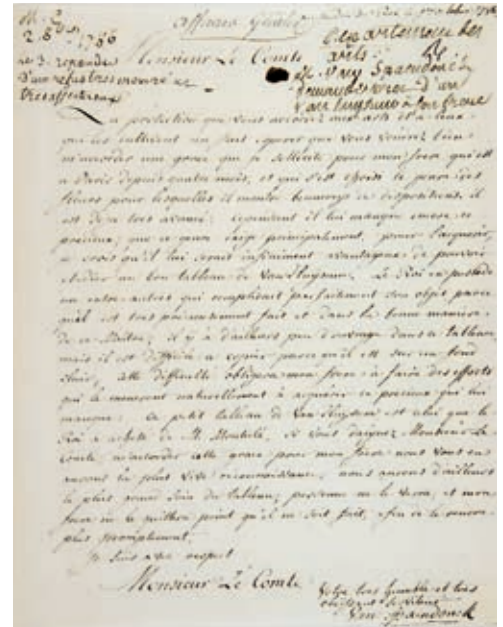 affaires générales
M. G.
2. 8bre 1786
le 3. répondu
d'un refus très mesuré et
très affectueux
Département des
arts
M. Van Spaendonck
demande
Van huysum à son frere
Monsieur Le Comte
La protection que vous accordez aux arts et à ceux
qui les cultivent me fait esperer que vous voudrez bien
m'accorder une grace que je sollicite pour mon frere qui est
a Paris depuis quatre mois, et qui s'est choisi le genre des
fleurs pour lesquelles il montre beaucoup de dispositions, il
est deja très avancé; cependant il lui manque encore ce
precieux, que ce genre exige principalement, pour l'acquerir,
je crois qu'il lui serait infiniment avantageux de pouvoir
etudier un bon tableau de Van Huysum. Le Roi en possede
un entre autres qui rempliroit parfaitement son objet parce
qu'il est très precieusement fait et dans la bonne maniere
de ce Maitre; il y a d'ailleurs peu d'ouvrage dans ce tableau,
mais il est difficile a copier parce qu'il est sur un fond
clair, cette difficulté obligera mon frere a faire des efforts
qui le meneront naturellement à acquerir ce precieux qui lui
manque. Ce petit tableau de Van Huysum est celui que le
Roi a acheté de M. Montulé. Si vous daignez Monsieur Le
Comte, m'accorder cette grace pour mon frere nous vous en
aurons la plus vive reconnaissance, nous aurons d'ailleurs
le plus grand soin du tableau; personne ne le verra, et mon
frere ne le quittera point qu'il ne soit fait, afin de le rendre
plus promptement.
Je suis avec respect
Monsieur Le Comte
Votre très humble et très
obéissant serviteur
Van Spaendonck